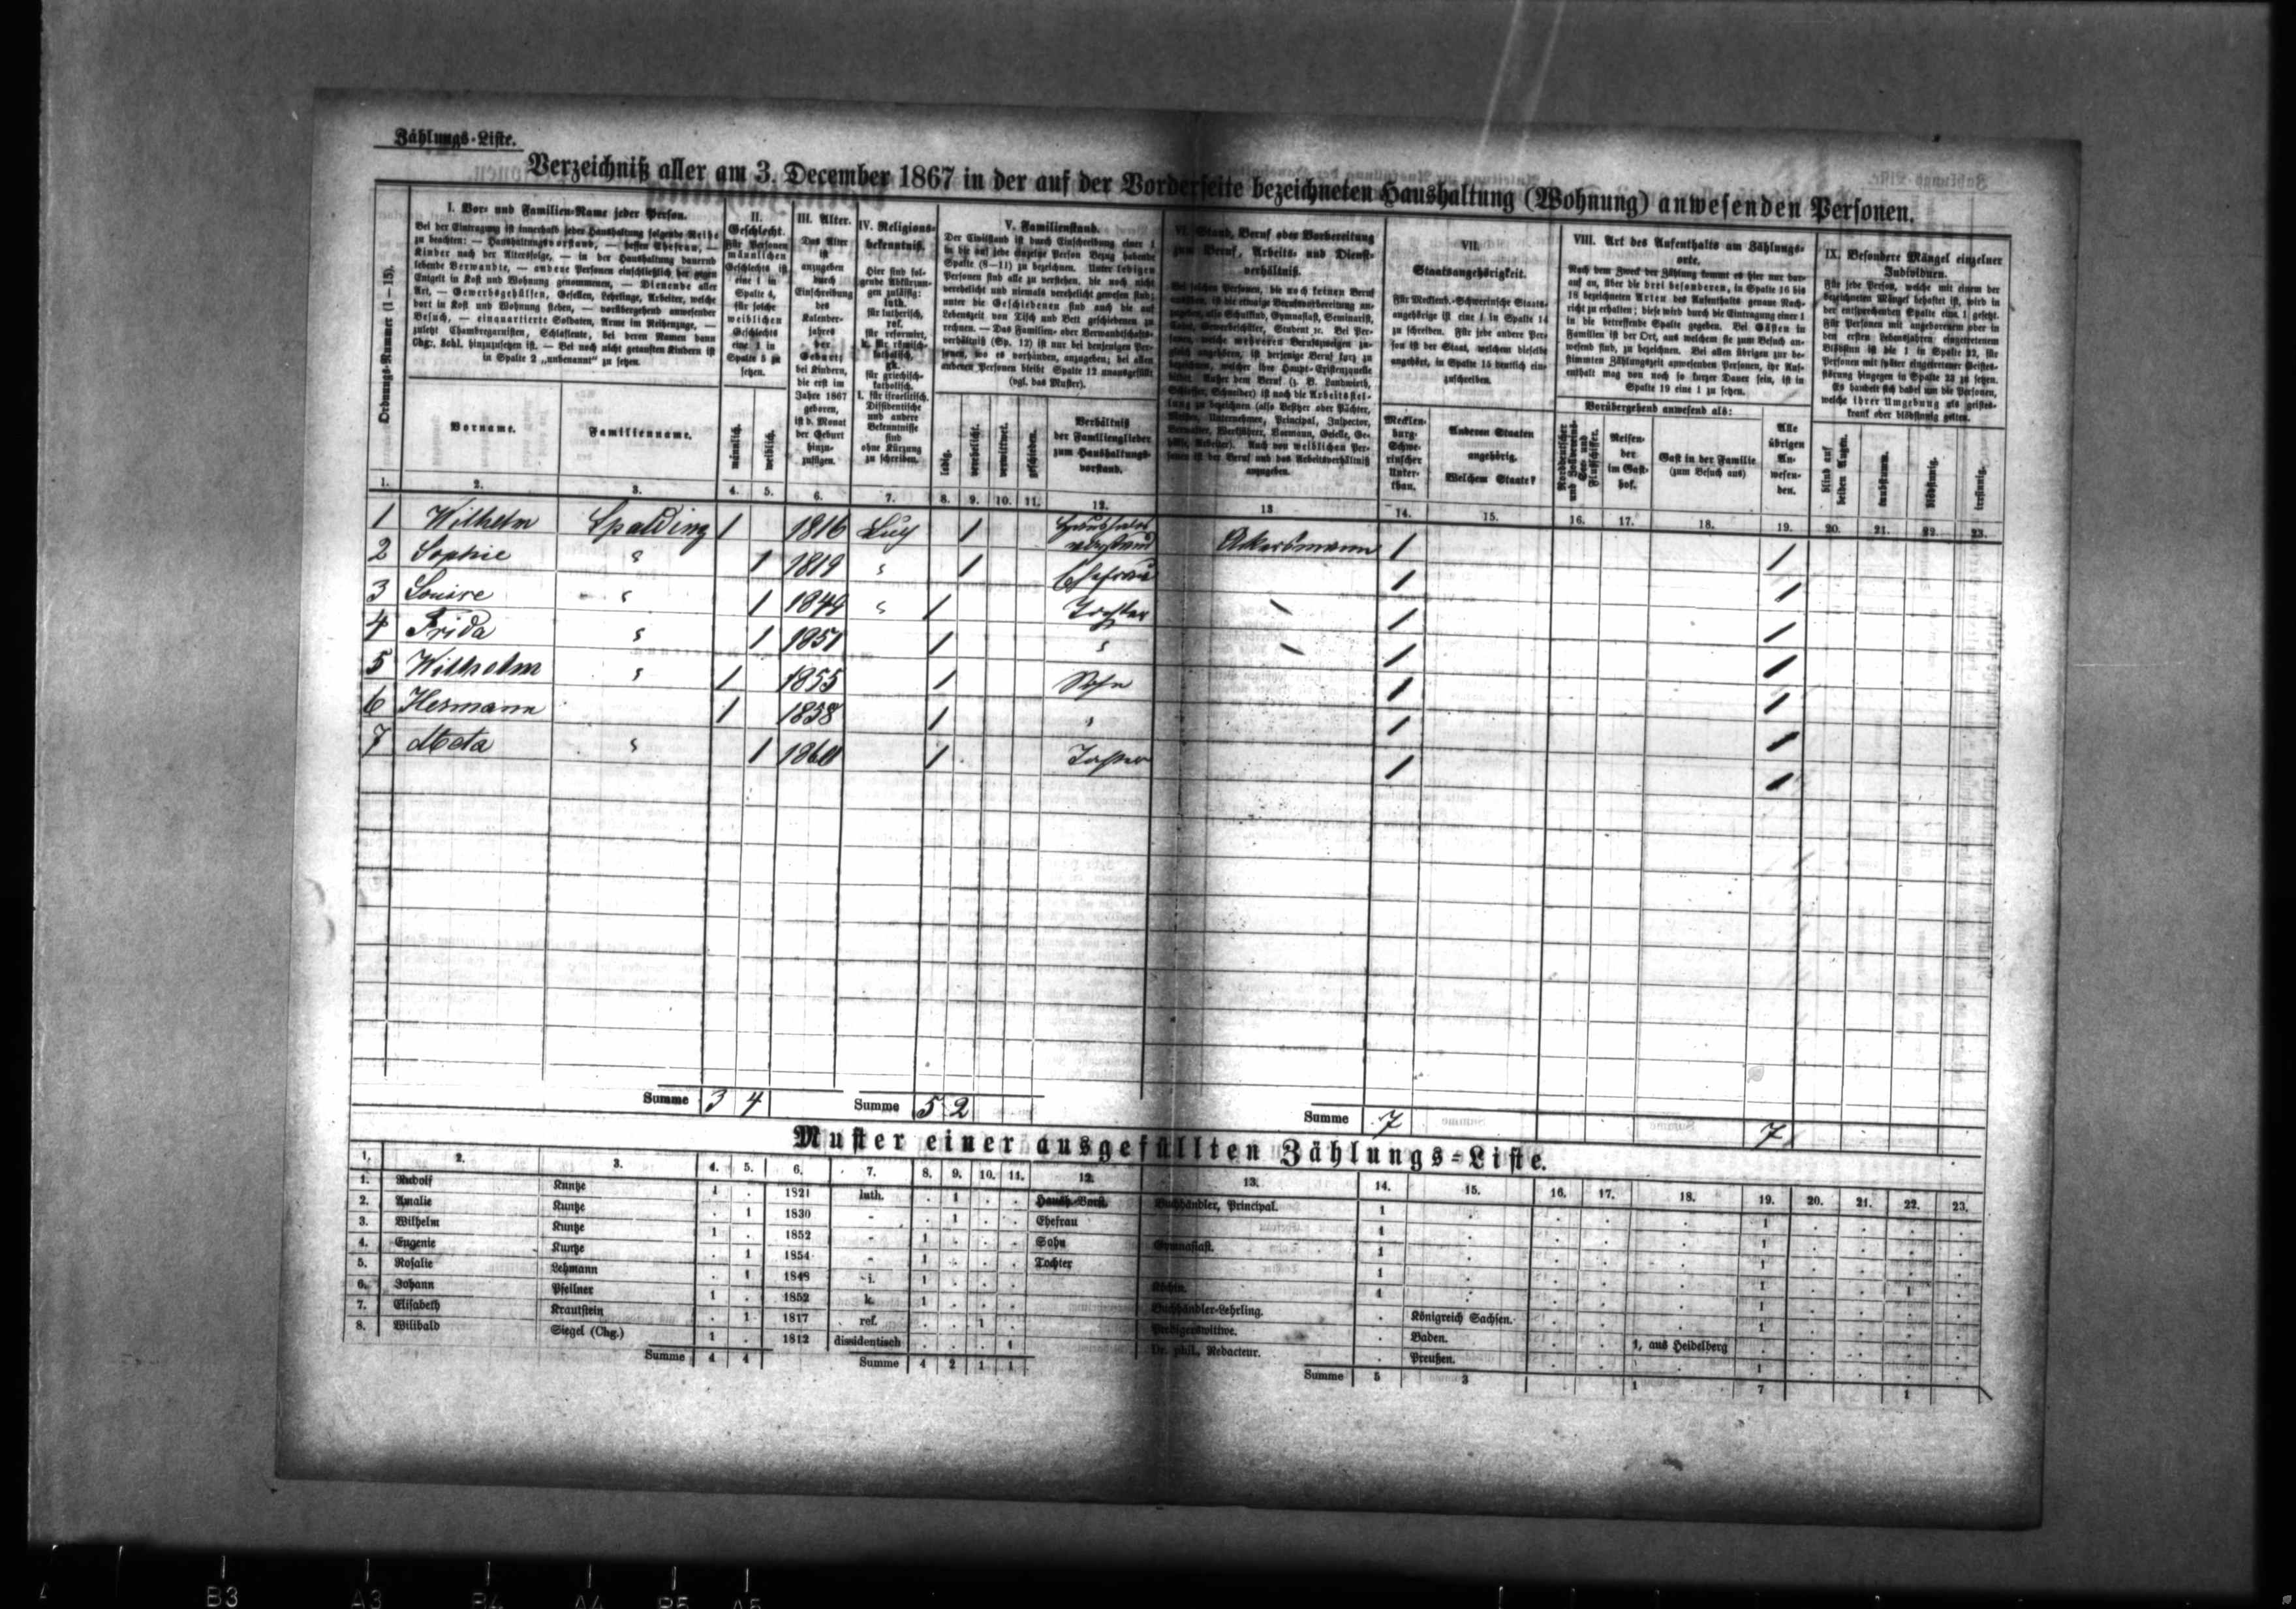 Zählungs-Liste.
Verzeichniß aller am 3. December 1867 in der auf der Vorderseite bezeichneten Haushaltung (Wohnung) anwesenden Personen.
Ordnungs-Nummer (1–15).
I. Vor- und Familien-Name jeder Person.
Bei der Eintragung ist innerhalb jeder Haushaltung folgende Reihe
zu beachten: — Haushaltungsvorstand, — dessen Ehefrau, —
Kinder nach der Altersfolge, — in der Haushaltung dauernd
lebende Verwandte, — andere Personen einschließlich der gegen
Entgelt in Kost und Wohnung genommenen, — Dienende aller
Art, — Gewerbsgehülfen, Gesellen, Lehrlinge, Arbeiter, welche
dort in Kost und Wohnung stehen, — vorübergehend anwesender
Besuch, — einquartierte Soldaten, Arme im Reihenzuge, —
zuletzt Chambregarnisten, Schlafleute, bei deren Namen dann
Chg.: Schl. hinzuzusetzen ist. — Bei noch nicht getauften Kindern ist
in Spalte 2 „unbenannt“ zu setzen.
Vorname.
Familienname.
II.
Geschlecht.
Für Personen
männlichen
Geschlechts ist
eine 1 in
Spalte 4,
für solche
weiblichen
Geschlechts
eine 1 in
Spalte 5 zu
setzen.
männlich.
weiblich.
III. Alter.
Das Alter
ist
anzugeben
durch
Einschreibung
des
Kalender-
jahres
der
Geburt;
bei Kindern,
die erst im
Jahre 1867
geboren,
ist d. Monat
der Geburt
hinzu-
zufügen.
IV. Religions-
bekenntniß.
Hier sind fol-
gende Abkürzun-
gen zulässig:
luth.
für lutherisch,
ref.
für reformirt,
k. für römisch-
katholisch,
gk.
für griechisch-
katholisch,
i. für israelitisch.
Dissidentische
und andere
Bekenntnisse
sind
ohne Kürzung
zu schreiben.
V. Familienstand.
Der Civilstand ist durch Einschreibung einer 1
in die auf jede einzelne Person Bezug habende
Spalte (8—11) zu bezeichnen. Unter ledigen
Personen sind alle zu verstehen, die noch nicht
verehelicht und niemals verehelicht gewesen sind;
unter die Geschiedenen sind auch die auf
Lebenszeit von Tisch und Bett geschiedenen zu
rechnen. — Das Familien- oder Verwandtschafts-
verhältniß (Sp. 12) ist nur bei denjenigen Per-
sonen, wo es vorhanden, anzugeben; bei allen
anderen Personen bleibt Spalte 12 unausgefüllt
(vgl. das Muster).
ledig.
verehelicht.
verwittwet.
geschieden.
Verhältniß
der Familienglieder
zum Haushaltungs-
vorstand.
VI. Stand, Beruf oder Vorbereitung
zum Beruf, Arbeits- und Dienst-
verhältniß.
anzugeben.
VII.
Staatsangehörigkeit.
Für Mecklenb.-Schwerinsche Staats-
angehörige ist eine 1 in Spalte 14
zu schreiben. Für jede andere Per-
son ist der Staat, welchem dieselbe
angehört, in Spalte 15 deutlich ein-
zuschreiben.
Mecklen-
burg-
Schwe-
rinscher
Unter-
than.
Anderen Staaten
angehörig.
Welchem Staate?
VIII. Art des Aufenthalts am Zählungs-
orte.
Nach dem Zweck der Zählung kommt es hier nur dar-
auf an, über die drei besonderen, in Spalte 16 bis
18 bezeichneten Arten des Aufenthalts genaue Nach-
richt zu erhalten; diese wird durch die Eintragung einer 1
in die betreffende Spalte gegeben. Bei Gästen in
Familien ist der Ort, aus welchem sie zum Besuch an-
wesend sind, zu bezeichnen. Bei allen übrigen zur be-
stimmten Zählungszeit anwesenden Personen, ihr Auf-
enthalt mag von noch so kurzer Dauer sein, ist in
Spalte 19 eine 1 zu setzen.
Vorübergehend anwesend als:
Norddeutscher
und Zollvereins-
See- und
Flußschiffer.
Reisen-
der
im Gast-
hof.
Gast in der Familie
(zum Besuch aus)
Alle
übrigen
An-
wesen-
den.
IX. Besondere Mängel einzelner
Individuen.
Für jede Person, welche mit einem der
bezeichneten Mängel behaftet ist, wird in
der entsprechenden Spalte eine 1 gesetzt.
Für Personen mit angeborenem oder in
den ersten Lebensjahren eingetretenem
Blödsinn ist die 1 in Spalte 22, für
Personen mit später eingetretener Geistes-
störung hingegen in Spalte 23 zu setzen.
Es handelt sich dabei um die Personen,
welche ihrer Umgebung als geistes-
krank oder blödsinnig gelten.
blind auf
beiden Augen.
taubstumm.
blödsinnig.
irrsinnig.
1. 2. 3. 4. 5. 6. 7. 8. 9. 10. 11. 12. 13 14. 15. 16. 17. 18. 19. 20. 21. 22. 23.
1 Wilhelm Spalding 1 1816 1 Ackersmann 1 1
2 Sophie " 1 1819 " 1 Ehefrau 1 1
3 Louise " 1 1849 " 1 Tochter 1 1
4 Frida " 1 1851 1 " 1 1
5 Wilhelm " 1 1855 1 Sohn 1 1
6 Hermann 1 1858 1 " 1 1
7 Meta " 1 1860 1 Tochter 1 1
Summe 3 4 Summe 5 2 Summe 7 7
Muster einer ausgefüllten Zählungs-Liste.
1. 2. 3. 4. 5. 6. 7. 8. 9. 10. 11. 12. 13. 14. 15. 16. 17. 18. 19. 20. 21. 22. 23.
1. Rudolf Kuntze 1 . 1821 luth. . 1 . . Haush.-Vorst. Buchhändler, Principal. 1 1
2. Amalie Kuntze . 1 1830 - . 1 . . Ehefrau 1 1
3. Wilhelm Kuntze 1 . 1852 - 1 . . . Sohn Gymnasiast. 1 1
4. Eugenie Kuntze . 1 1854 - 1 . . . Tochter 1 1 1
5. Rosalie Lehmann . 1 1848 i. 1 . . . Köchin. 1 1
6. Johann Pfeilner 1 . 1852 k. 1 . . . Buchhändler-Lehrling. . Königreich Sachsen. 1
7. Elisabeth Krautstein . 1 1817 ref. . . 1 . Predigerswittwe. . Baden. 1, aus Heidelberg
8. Willibald Siegel (Chg.) 1 . 1812 dissidentisch . . . 1 Dr. phil., Redacteur. . Preußen. 1
Summe 4 4 Summe 4 2 1 1 Summe 5 3 1 7 1
B3 A3 B4 A4 B5 A5